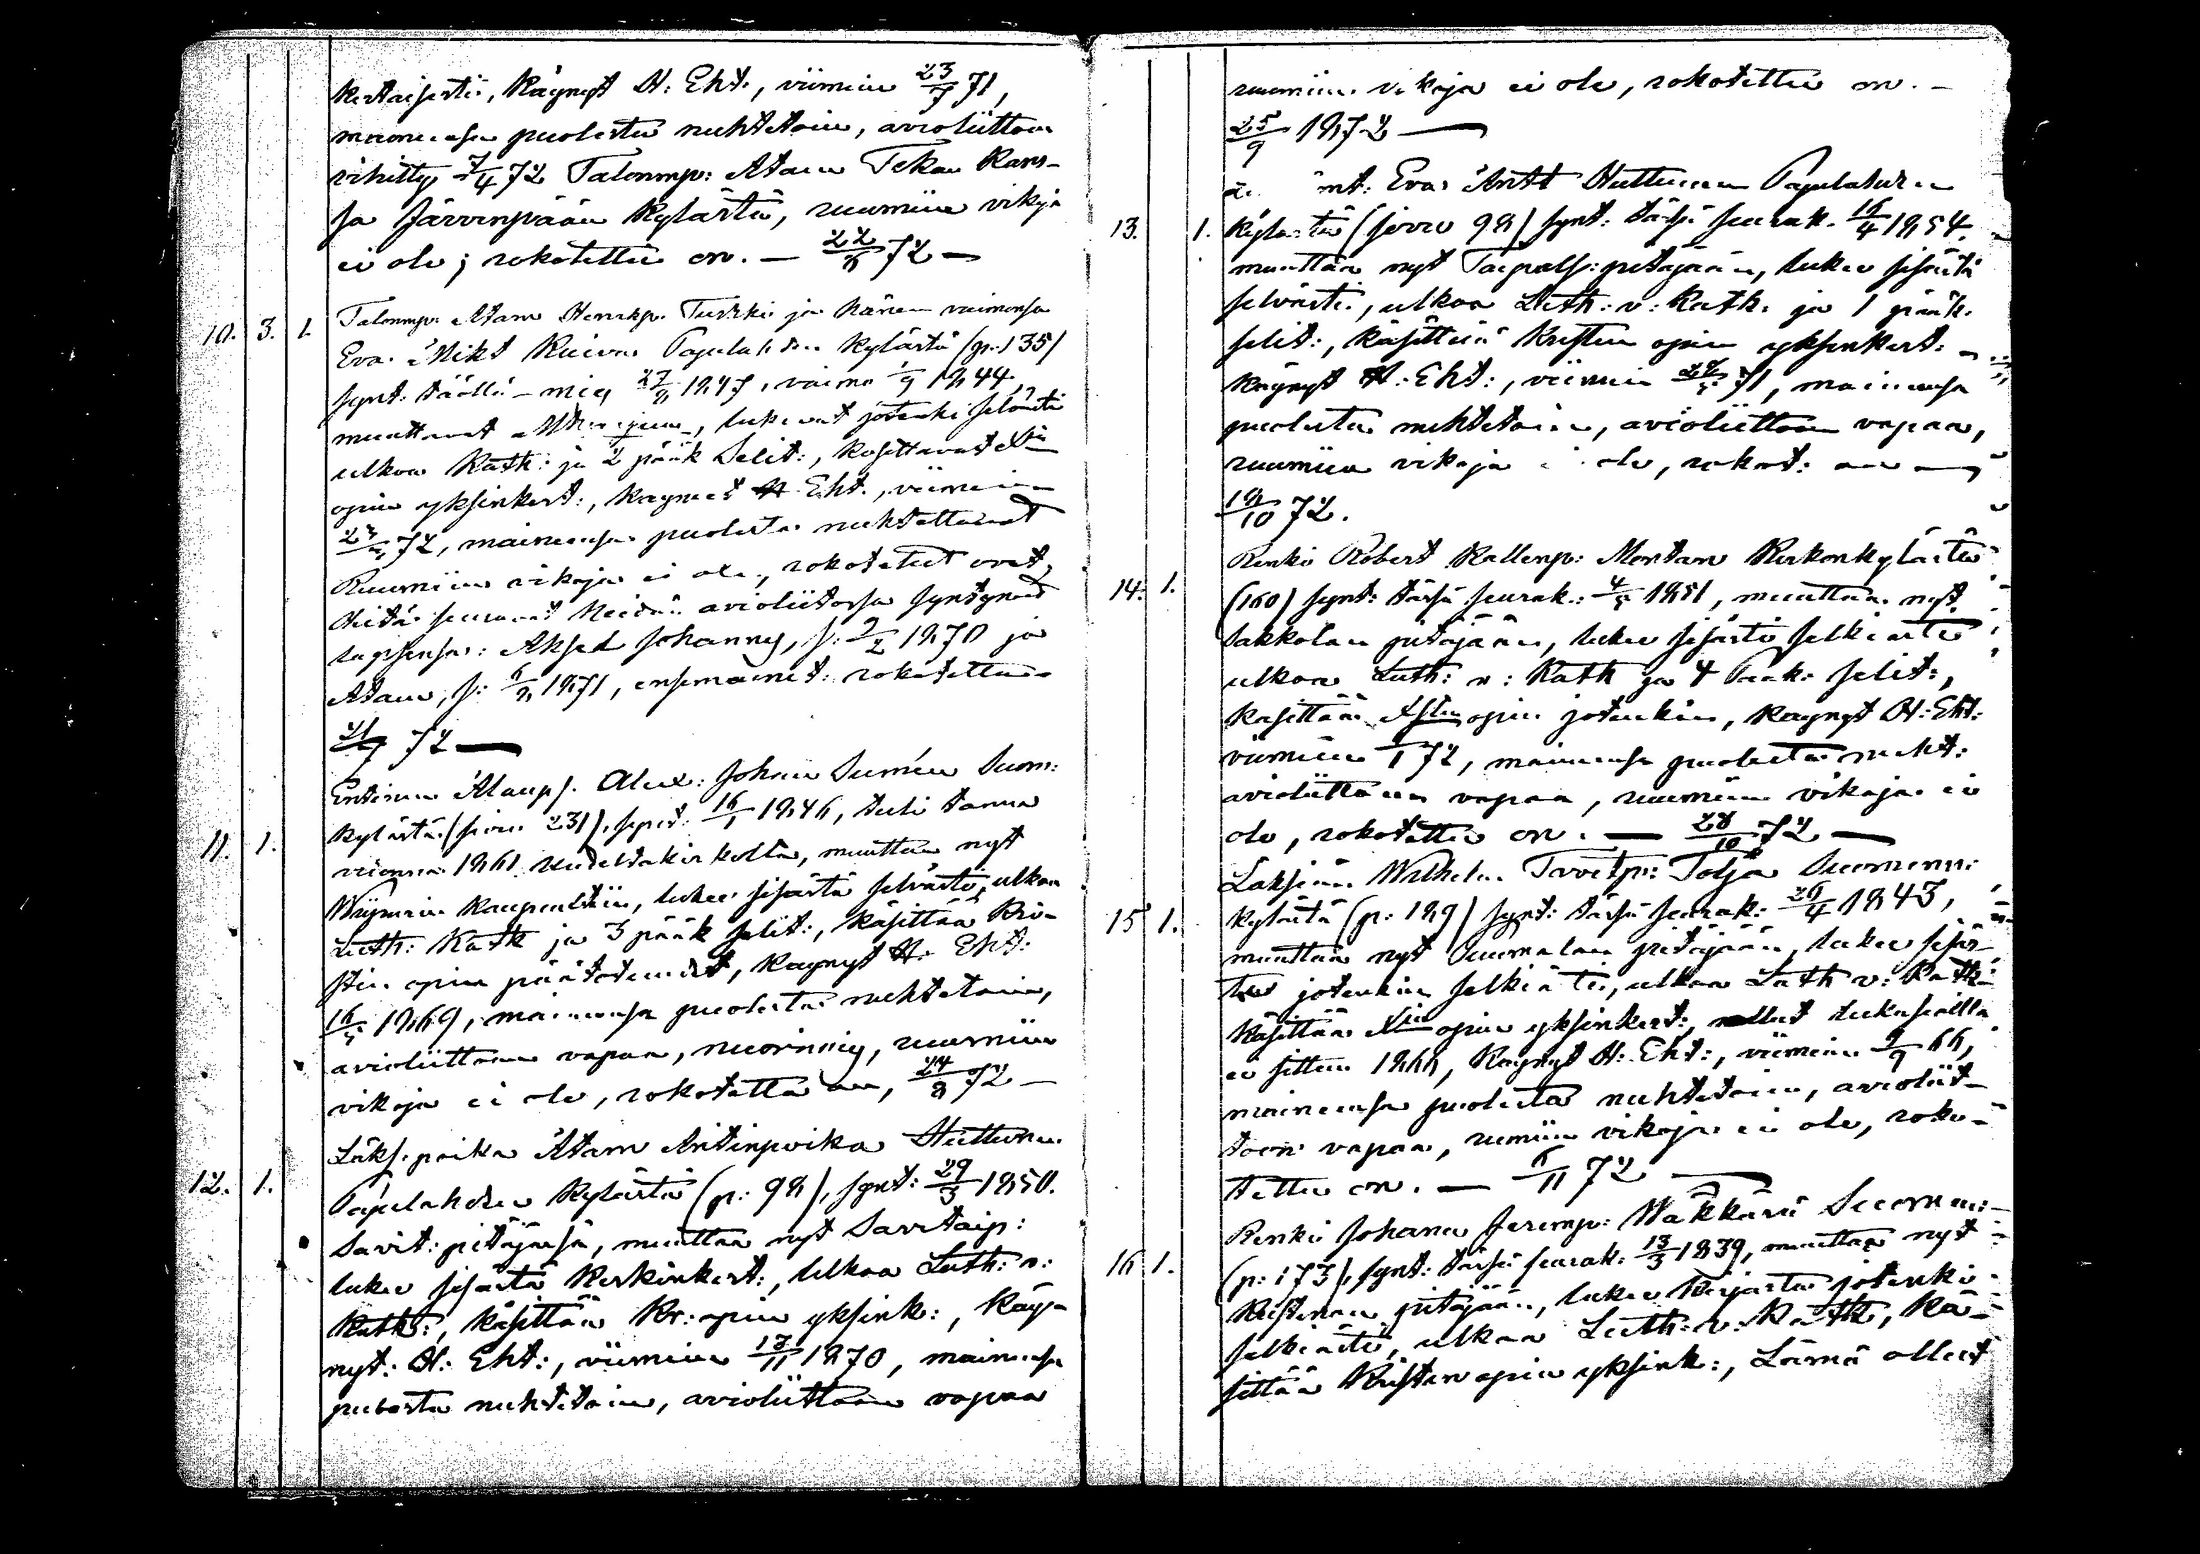 kertaisesti, käynyt H. Eht., viimein 23/7 71,
maineensa puolesta nuhtetoin, avioliittoon
vihitty 7/4 72 Talonmp: Atam Tekon kans-
sa Järvenpään kylästä, ruumiin vikoja
ei ole; rokotettu on. — 72 —
10. 3. 1. Talonmp. Atam Henrikp. Turkki ja hänen vaimonsa
Eva Kylästä (p: 135)
synt. täällä – mies 1847, vaimo 1844,
muuttavat lukevat jotenki selvästi
ulkoa Kath: ja 2 pääk Selit:, käsittävät
opin yksinkert:, käyneet H. Eht., viimein
72, maineensa puolesta nuhtettomat
Ruumiin vikoja ei ole, rokotetut ovat,
Heitä seuraavat heidän avioliitossa syntyneet
lapsensa: Aksel Johannes, s: 1870 ja
Atam, s: 1871, ensimainit: rokotettu
72 —
Entinen Alex: Johan Suom:
11. 1. kylästä (sivu 231), synt: 1846, tuli tänne
vuonna 1861 Uudeltakirkolta, muuttaa nyt
Wiipurin kaupunkiin, lukee sisästä selvästi, ulkoa
Luth: Kath ja 3 pääk selit:, käsittää Kri-
stin opin päätotuudet, käynyt H. Eht:
1869, maineensa puolesta nuhtetoin,
avioliittoon vapaa, nuorimies, ruumiin
vikoja ei ole, rokotettu on, 24/8 72 —
Läks. poika Atam Antinpoika Huttunen
12. 1. Papulahden kylästä (p: 98), synt: 29/3 1850.
Savit: pitäjäsä, muuttaa nyt Savitaip:
lukee sisästä keskinkert:, ulkoa Luth: v:
Kath:, käsittää Kr: opin yksink:, käy-
nyt: H: Eht:, viimein 13/11 1870, maineensa
puolesta nuhtetoin, avioliittoon vapaa
ruumiin vikoja ei ole, rokotettu on. —
25/9 1872 —
Eva Antt Huttunen Papulahden
13. 1. kylästä (sivu 98) synt: tässä seurak. 1854.
muuttaa nyt Taipalss: pitäjään, lukee sisästä
selvästi, ulkoa Luth: v: Kath. ja 1 pääk.
selit:, käsittää Kristin opin yksinkert:
käynyt H: Eht:, viimein 71, maineensa
puolesta nuhtetoin, avioliittoon vapaa,
ruumiin vikoja ei ole, rokot: on —
18/10 72.
Renki Robert Kallenp: Montan Kirkonkylästä
14. 1. (160) synt: tässä seurak: 1851, muuttaa nyt
Sakkolan pitäjään, lukee sisästä selkiästi
ulkoa Luth: v: Kath ja 4 Pääk: selit:,
käsittää opin jotenkin, käynyt H: Eht:
viimein 72, maineensa puolesta nuht:
avioliittoon vapaa, ruumiin vikoja ei
ole, rokotettu on. — 28/10 72 —
Wilhelm Tavetp: Tolja Suomenn:
15 1. kylästä (p: 189) synt: tässä seurak: 26/4 1843,
muuttaa nyt pitäjään, lukee sisäs-
tä jotenkin selkiästi, ulkoa Luth v: Kath:
käsittää opin yksinkert:, ollut lukusialla
ei sitten 1866, käynyt H: Eht:, viimein 66,
maineensa puolesta nuhtetoin, avioliit-
toon vapaa, ruumiin vikoja ei ole, roko-
tettu on. — 6/11 72 —
Renki Johann Jeremp: Wäkkärä Suomenn:
16 1. (p: 173), synt: tässä seurak: 13/3 1839, muuttaa nyt
pitäjään, lukee kirjasta jotenki
selkiästi, ulkoa Luth: v: Kath, kä-
sittää Kristin opin yksink:, ollut